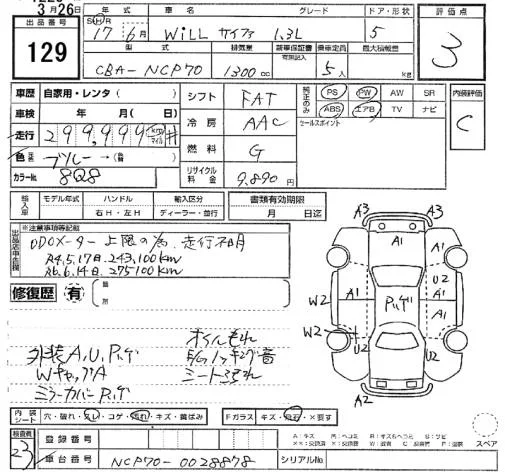 3月26日
出品番号
129
年式 車名 グレード ドア・形状
S H R 17年 6月 WiLL サイファ 1.3L 5
型式 排気量 新車保証書 有効記録 乗車定員 最大積載量
CBA-NCP70 1300cc 5人 kg
評価点
3
車歴 自家用・レンタ( )
車検 年 月( 日)
走行 299,999 km マイル
色 ブルー→
カラーNo. 8Q8
シフト FAT
冷房 AAC
燃料 G
リサイクル料金 9,890円
純正のみ PS PW AW SR
ABS エアB TV ナビ
セールスポイント
内装評価
C
輸入車 モデル年式 ハンドル 輸入区分
右H・左H ディーラー・並行
書類有効期限
月 日迄
出品店申告欄
※注意事項等記載
ODOメーター上限の為、走行不明
R4.5.17日.243,100km
R6.6.14日.275100km
修復歴 有
箇所
オイルもれ
外装A,U,Pハゲ E/Gノッキング音
WキャップA シートコスれ
ミラーカバーPハゲ
A3 A3
A1
A1 A1 U2
W2 Pハゲ A1 A1
W2 U2 A1 U2
A2
スペア
内装シート 穴・破れ・ヨレ・コゲ・汚れ・キズ・黄ばみ Fガラス キズ・飛石・×要す
検査員
23
登録番号
車台番号 NCP70-0028878 シリアルNo.